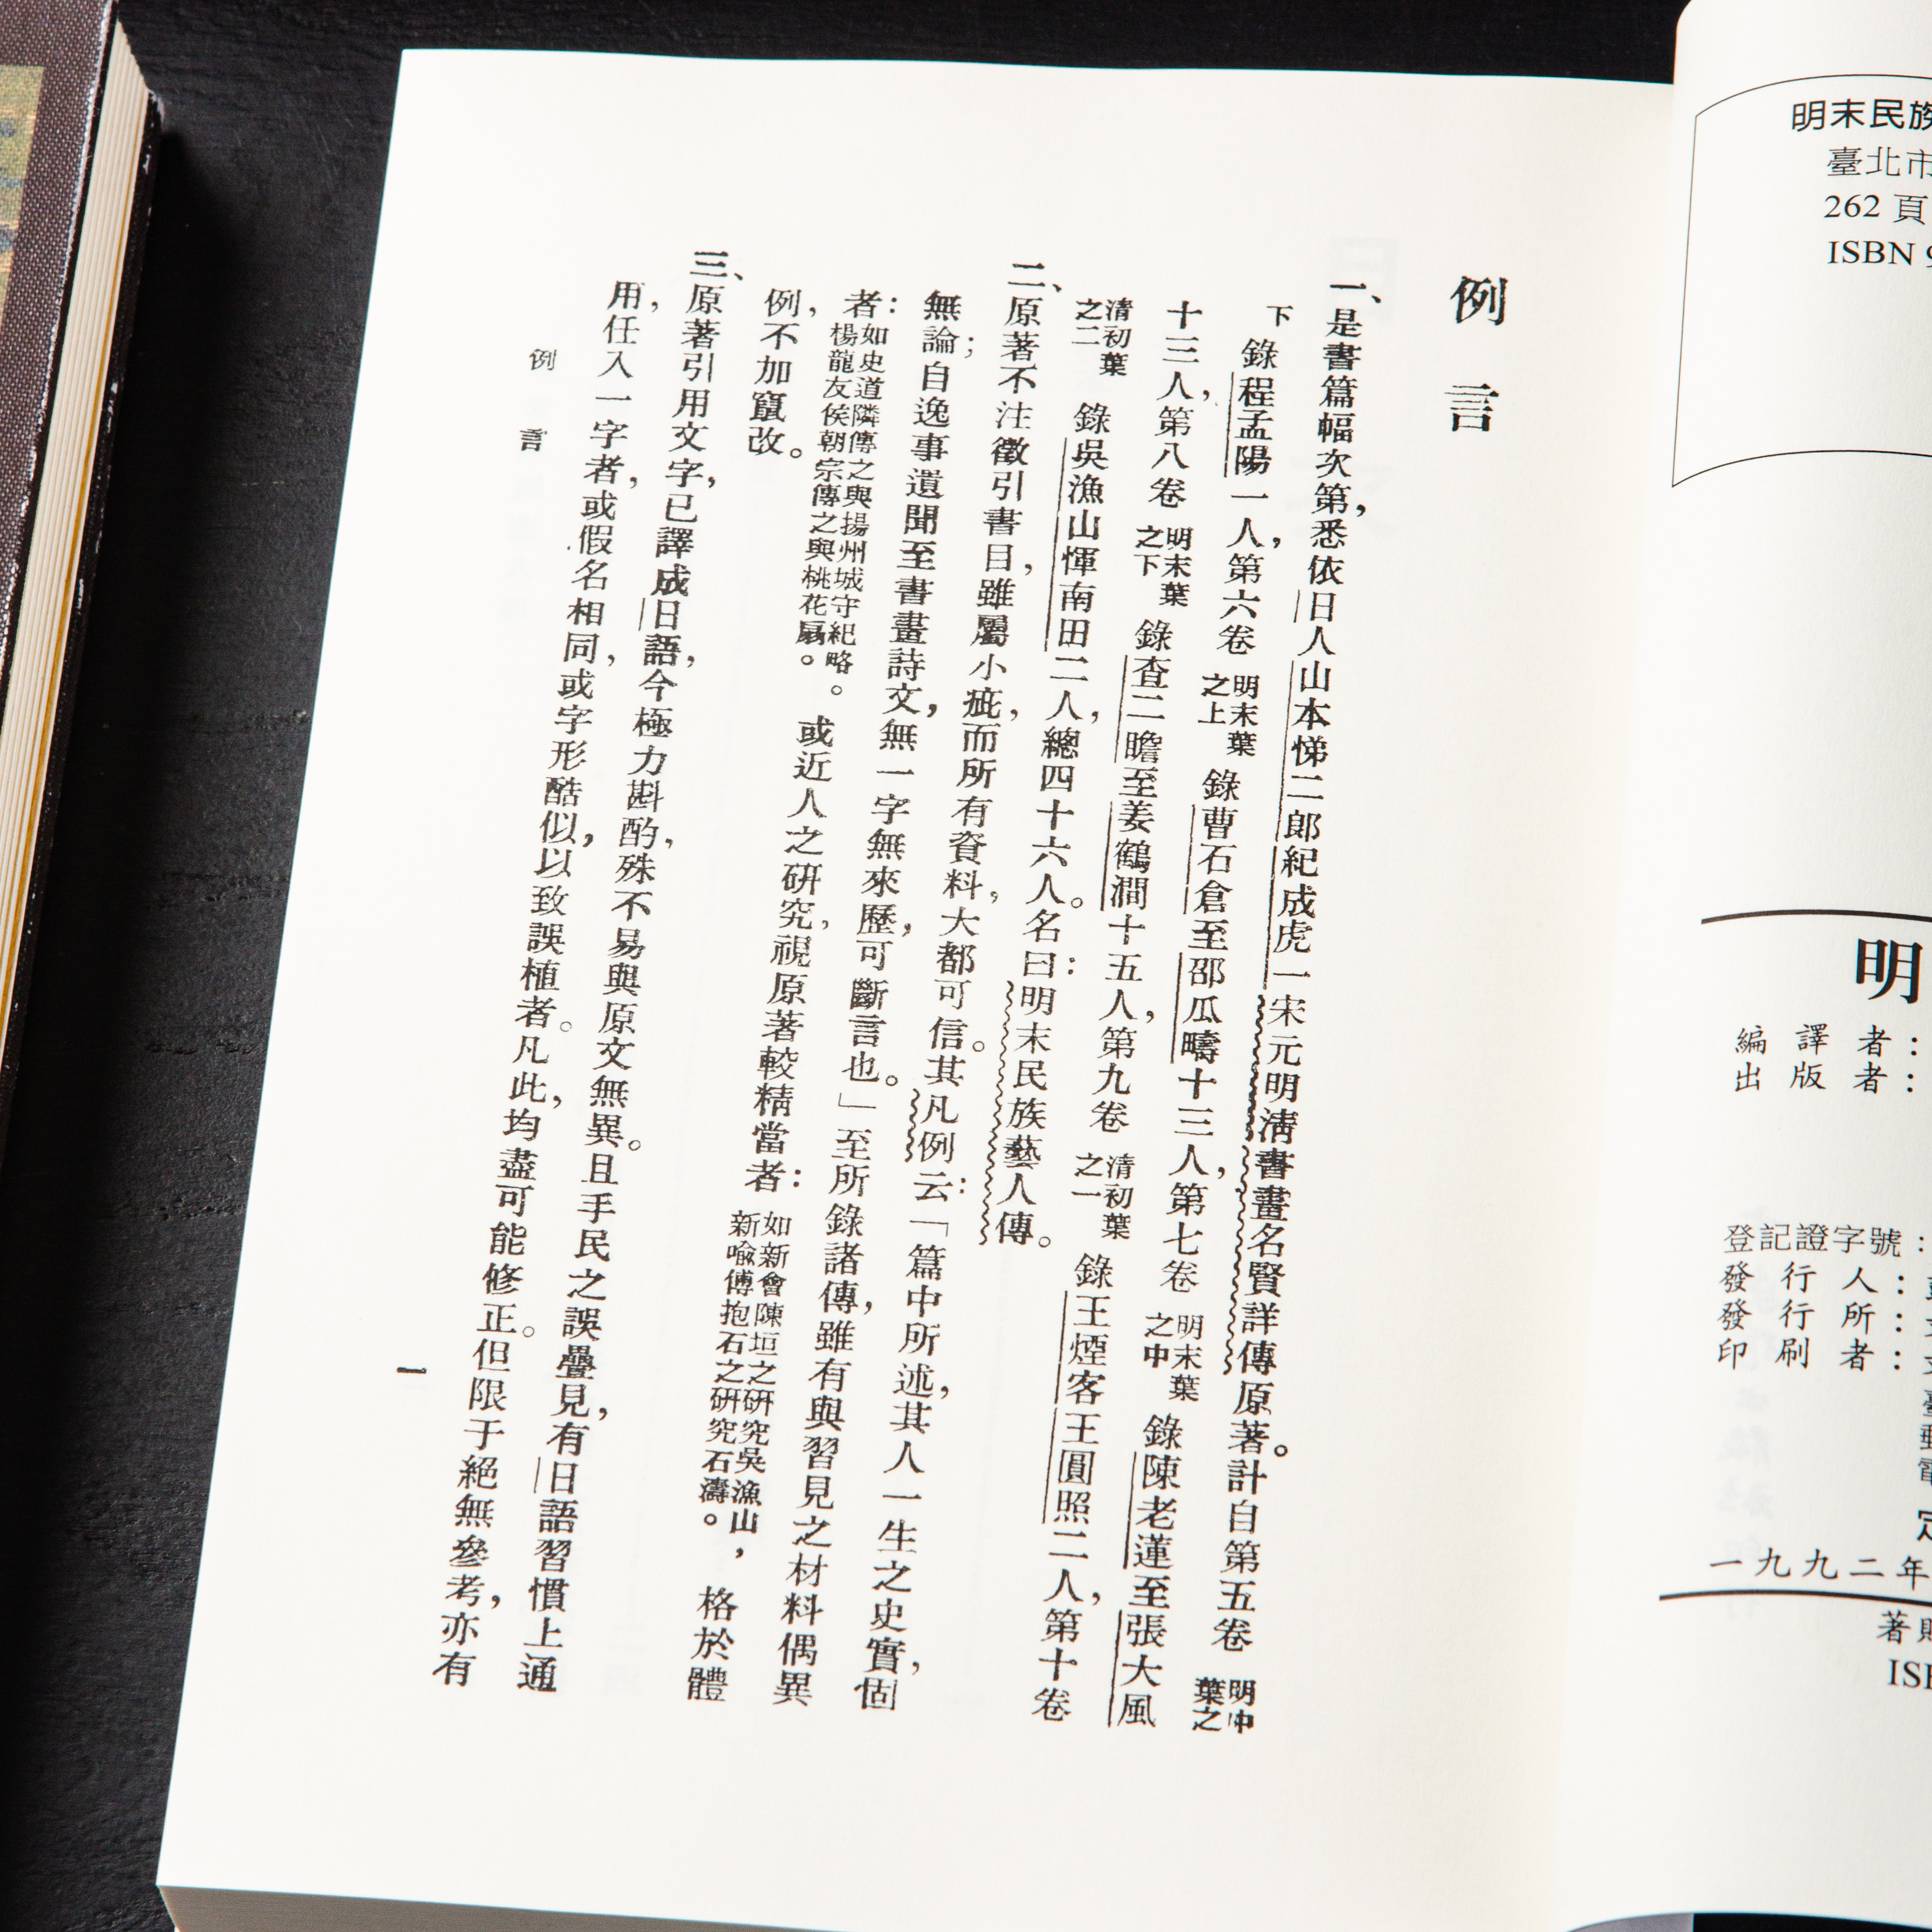 明末民族
臺北市
262 頁
ISBN
明
編譯者：
出版者：
登記證字號：
發行人：
發行所：
印刷者：
一九九二年
著
例言
一、是書篇幅次第，悉依日人山本悌二郎紀成虎一宋元明清書畫名賢詳傳原著。計自第五卷明中葉之
下錄程孟陽一人，第六卷明末葉之上錄曹石倉至邵瓜疇十三人，第七卷明末葉之中錄陳老蓮至張大風
十三人，第八卷明末葉之下錄查二瞻至姜鶴澗十五人，第九卷清初葉之一錄王煙客王圓照二人，第十卷
清初葉之二錄吳漁山惲南田二人，總四十六人。名曰：明末民族藝人傳。
二、原著不注徵引書目，雖屬小疵，而所有資料，大都可信。其凡例云：「篇中所述，其人一生之史實，固
無論；自逸事遺聞至書畫詩文，無一字無來歷，可斷言也。」至所錄諸傳，雖有與習見之材料偶異
者：如史道隣傳之與揚州城守紀略。楊龍友侯朝宗傳之與桃花扇。或近人之研究，視原著較精當者：如新會陳垣之研究吳漁山，新喻傅抱石之研究石濤。格於體
例，不加竄改。
三、原著引用文字，已譯成日語，今極力斟酌，殊不易與原文無異。且手民之誤疊見，有日語習慣上通
用，任入一字者，或假名相同，或字形酷似，以致誤植者。凡此，均盡可能修正。但限于絕無參考，亦有
例言
一